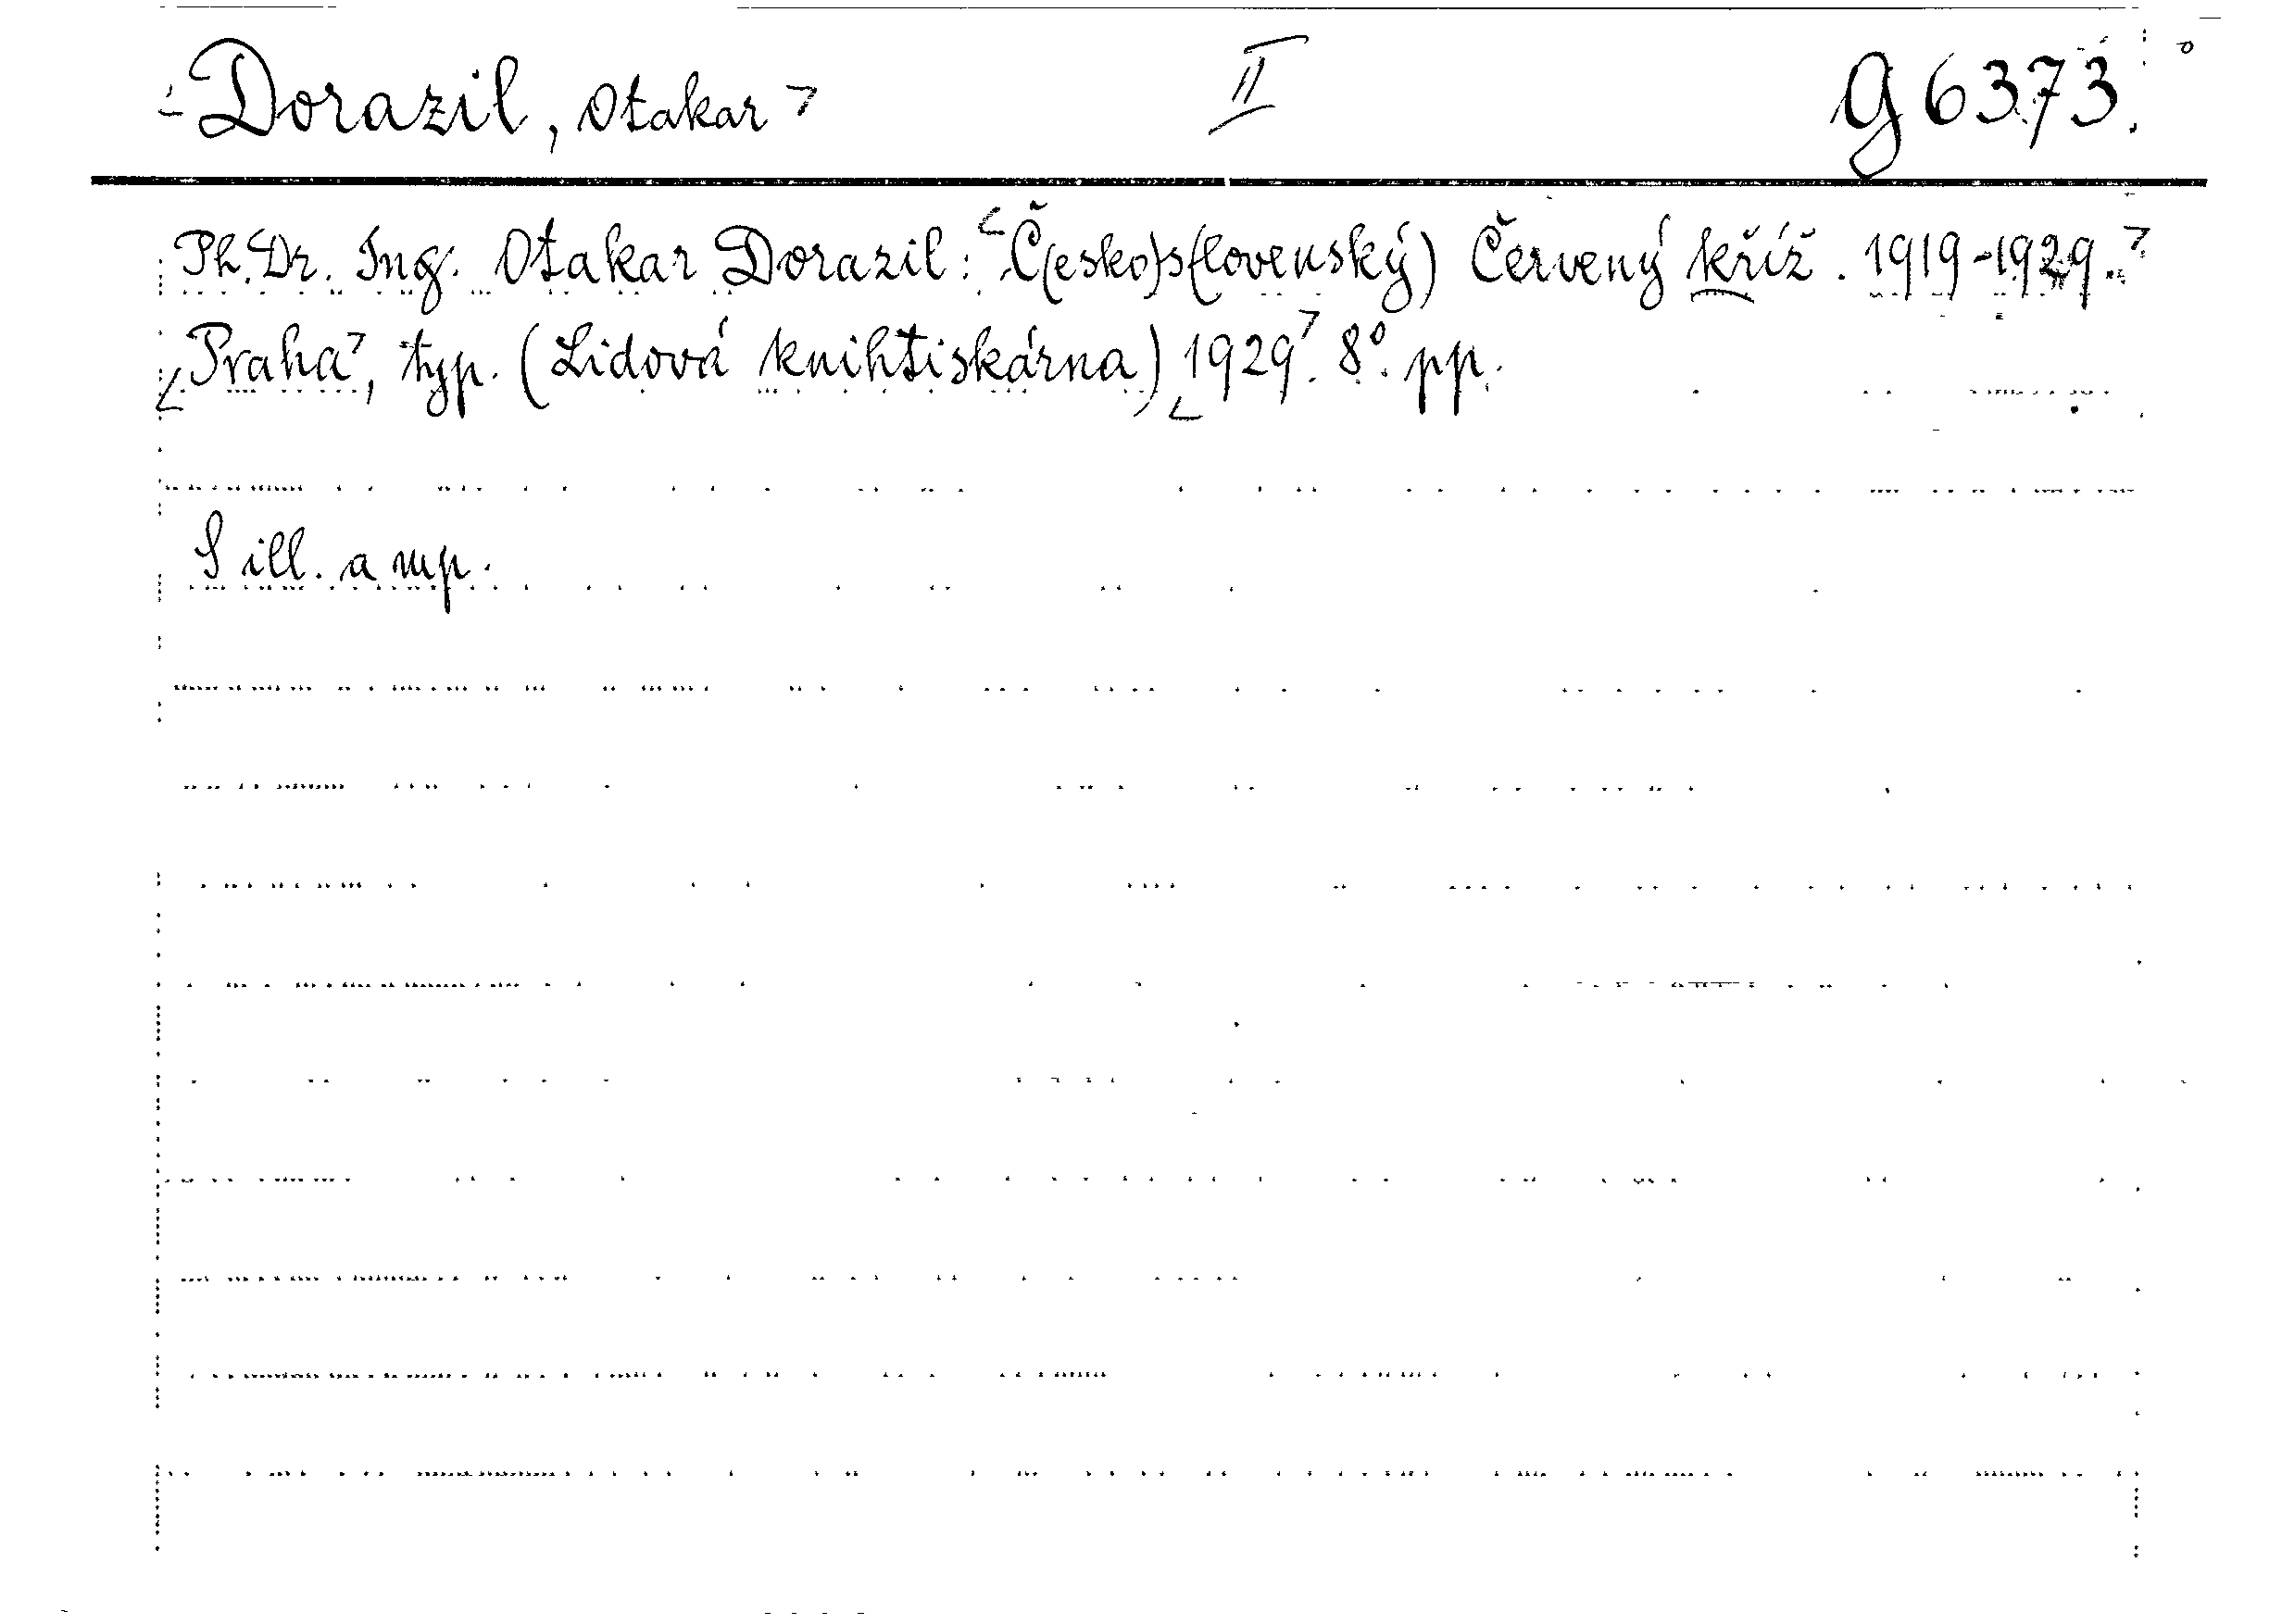 Dorazil, Otakar II G 6373.
Ph.Dr. Ing. Otakar Dorazil: Č(esko)s(lovenský) Červený kříž. 1919-1929.
Praha, typ. (Lidová knihtiskárna) 1929. 8° pp.
S ill. a mp.